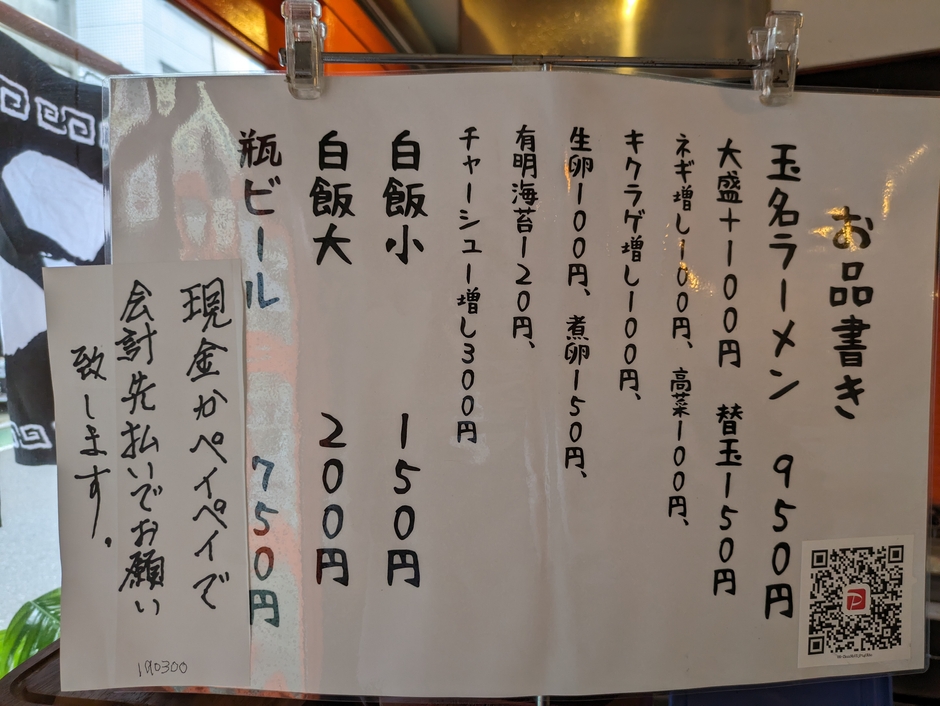 お品書き
玉名ラーメン 950円
大盛+100円 替玉150円
ネギ増し100円、高菜100円、
キクラゲ増し100円、
生卵100円、煮卵150円、
有明海苔120円、
チャーシュー増し300円
白飯小 150円
白飯大 200円
瓶ビール 750円
現金かペイペイで
会計先払いでお願い
致します。
190300